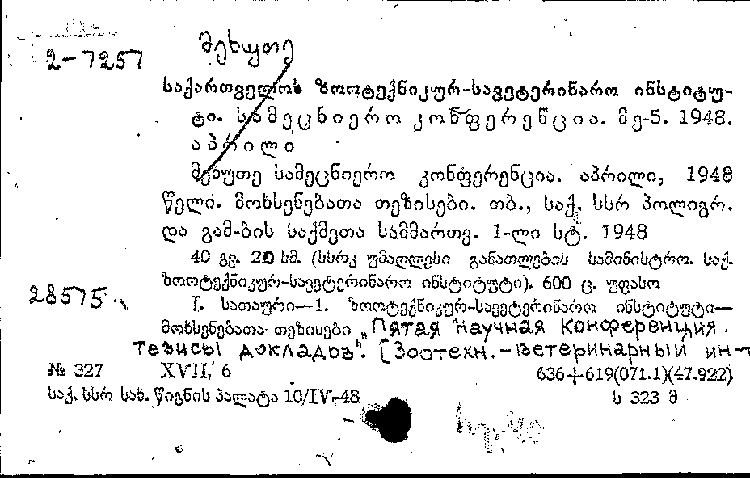 მეხუთე
2-7257
საქართველოს ზოოტექნიკურ-სავეტერინარო ინსტიტუ-
ტი. სამეცნიერო კონფერენცია. მე-5. 1948.
აპრილი
მეხუთე სამეცნიერო კონფერენცია. აპრილი, 1948
წელი. მოხსენებათა თეზისები. თბ., საქ. სსრ პოლიგრ.
და გამ-ბის საქმეთა სამმართვ. 1-ლი სტ. 1948
40 გვ. 20 სმ. (სსრკ უმაღლესი განათლების სამინისტრო. საქ.
ზოოტექნიკურ-სავეტერინარო ინსტიტუტი). 600 ც. უფასო
28575
I. სათაური—1. ზოოტექნიკურ-სავეტერინარო ინსტიტუტი—
მოხსენებათა თეზისები „Пятая научная конференция.
Тезисы докладов". [Зоотехн.-ветеринарный ин-т
№ 327 XVII, 6 636+619(071.1)(47.922)
საქ. სსრ სახ. წიგნის პალატა 10/IV-48 ს 323 მ